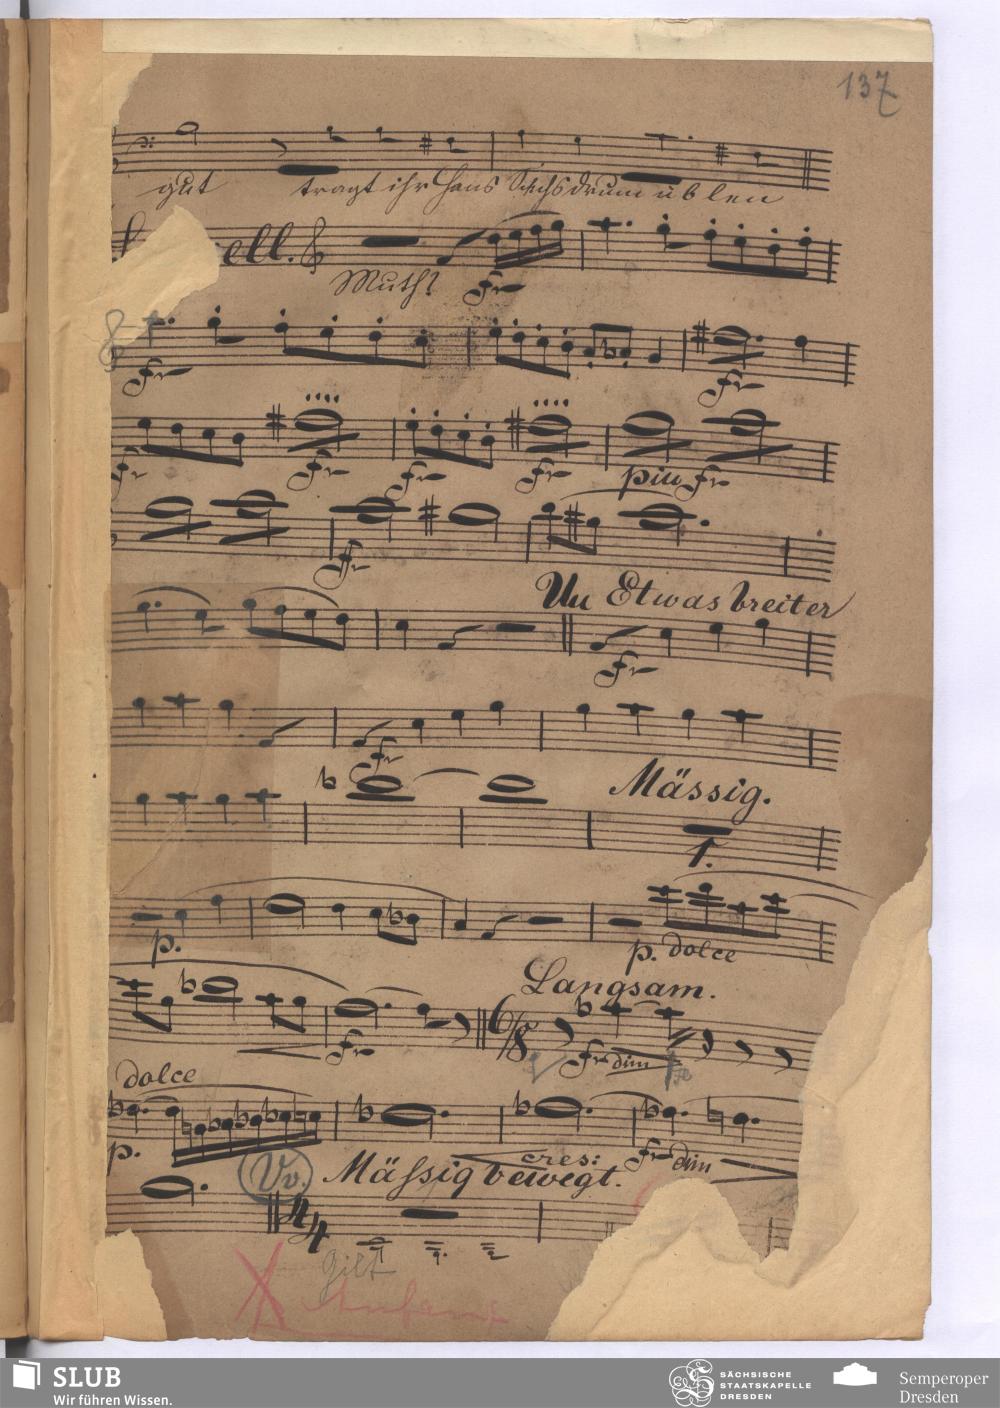 137
gut tragt ihr Hans Sachs drum üblen
ell. Muth? Fr
Fr Fr
Fr Fr Fr Fr piu Fr
Fr
Etwas breiter
Fr
Fr
Mässig.
1.
p. p. dolce
Langsam.
Fr 6/8 Fr dim
dolce
p. cres: Fr dim
Vv. Mässig bewegt.
4/4
gilt
SLUB
Wir führen Wissen.
SÄCHSISCHE
STAATSKAPELLE
DRESDEN
Semperoper
Dresden